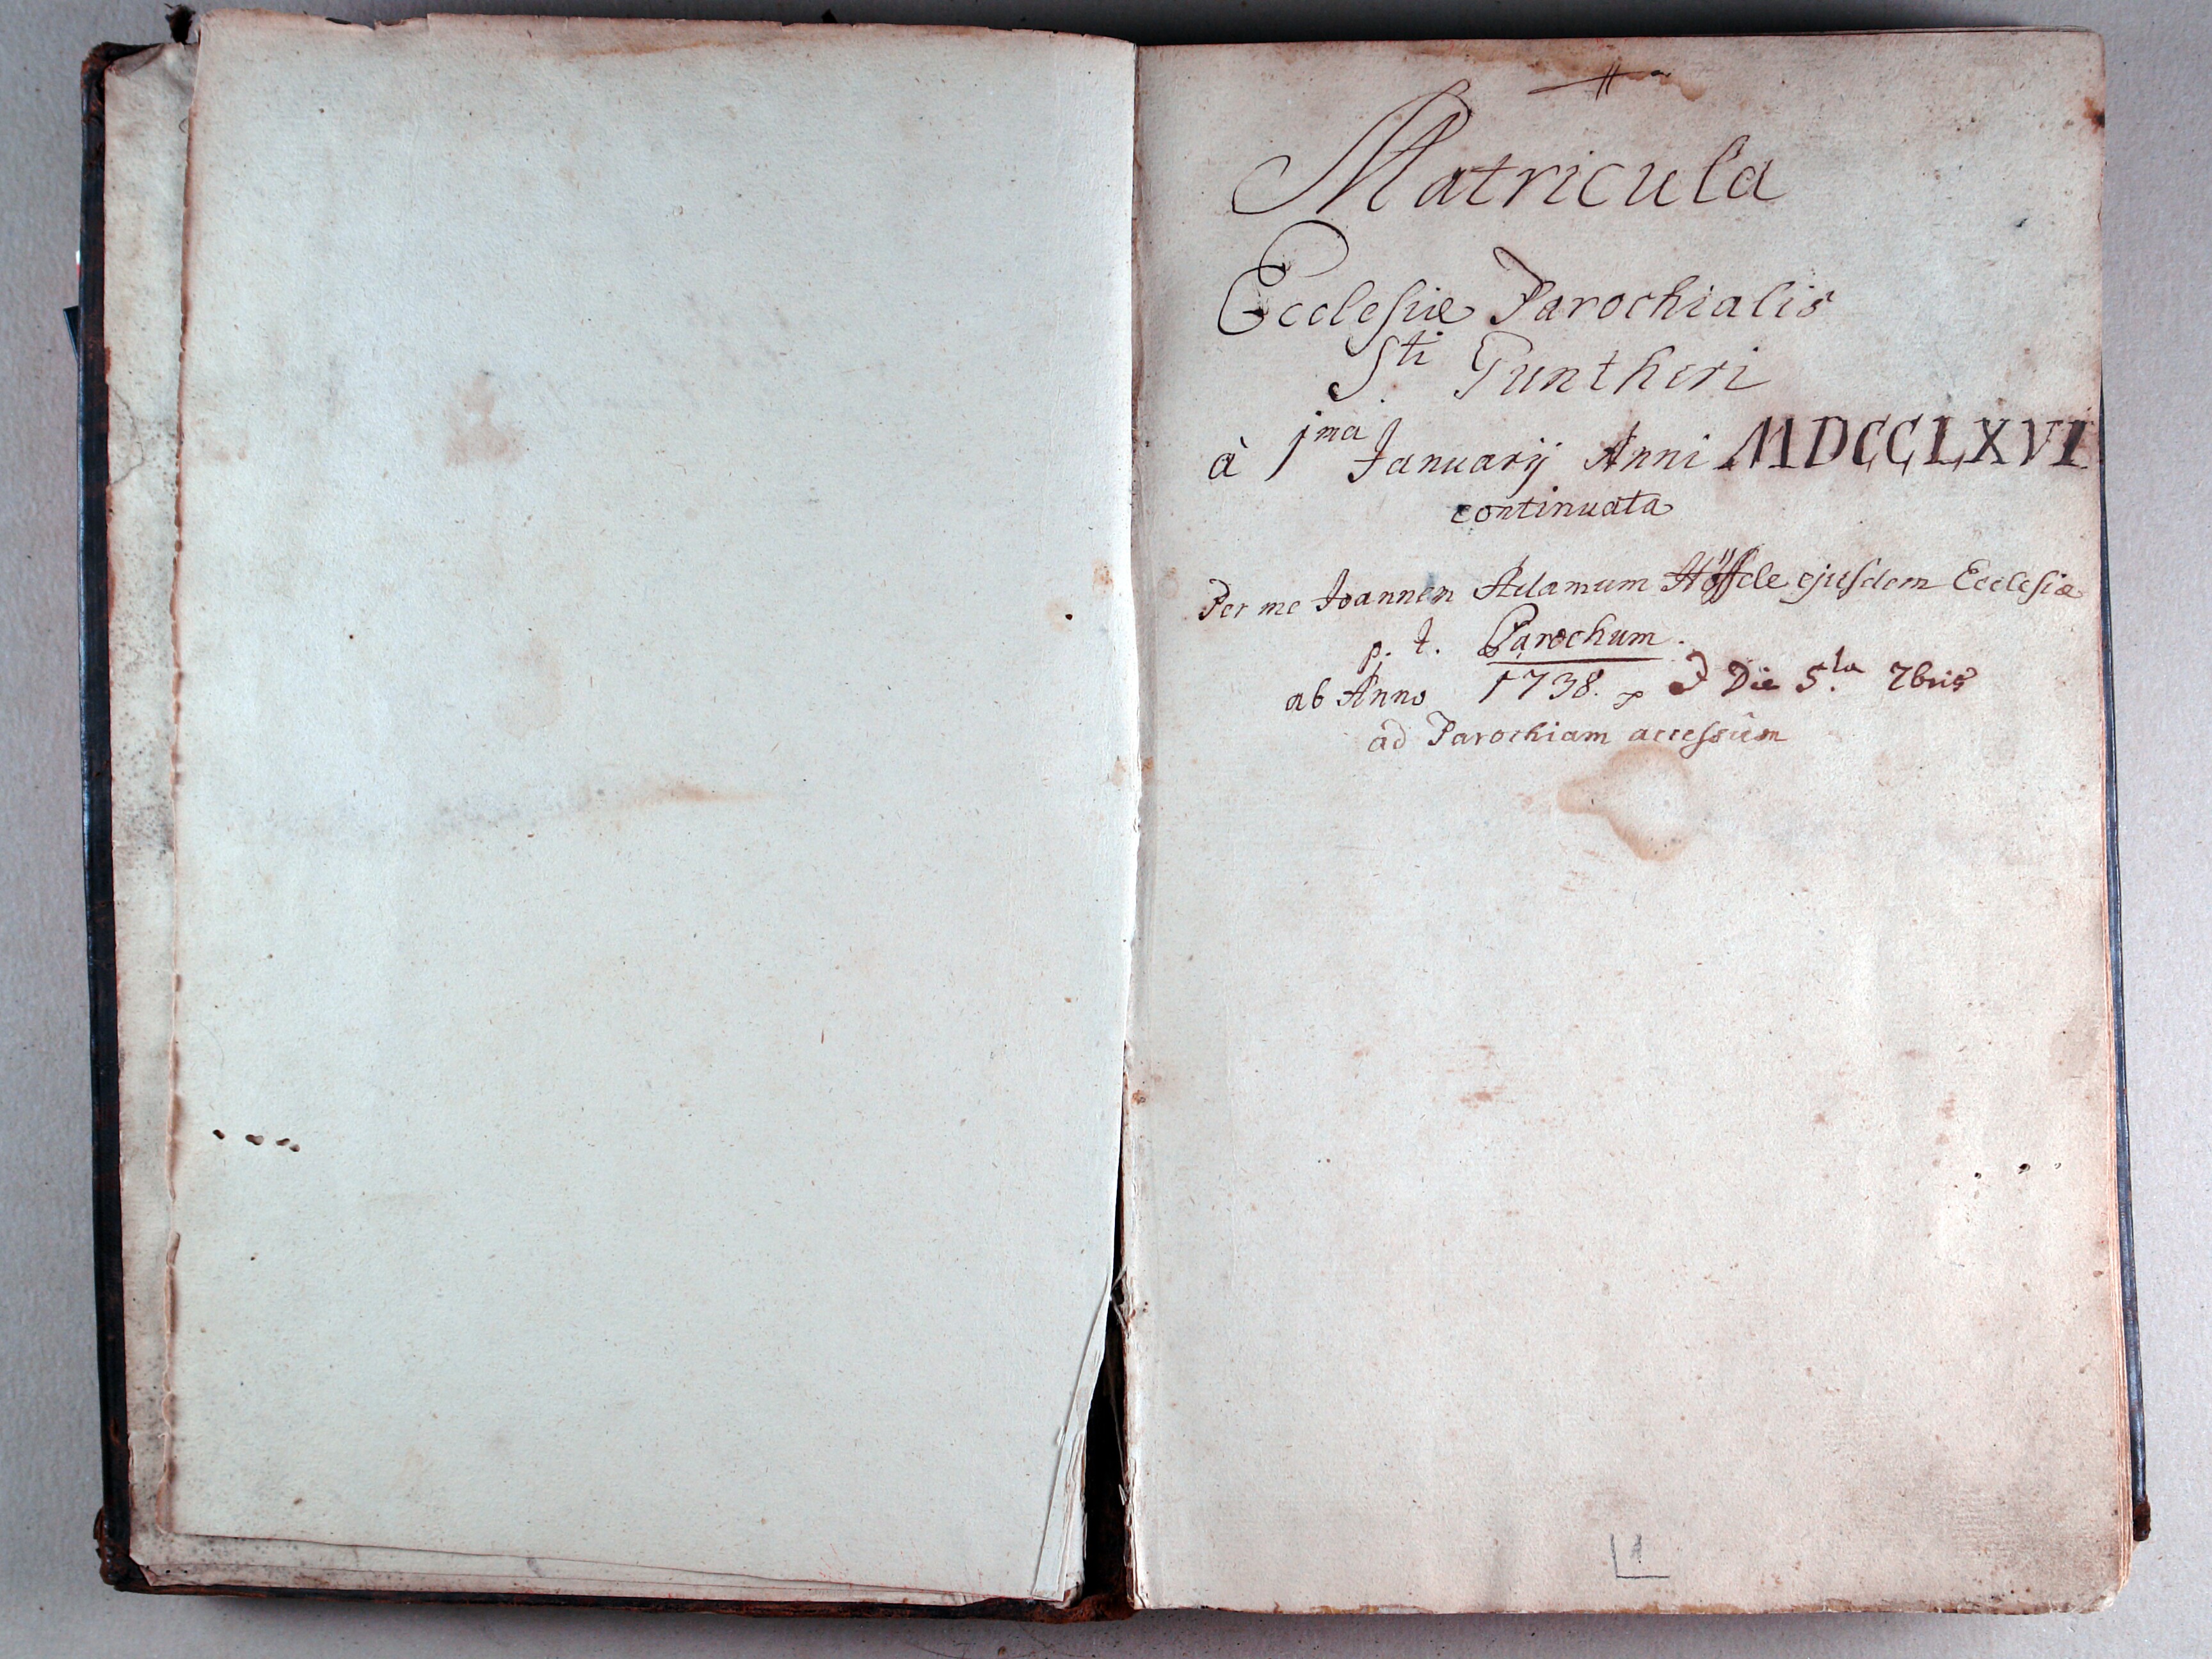 Matricula
Ecclesiæ Parochialis
Sti Guntheri
à 1ma Januarij Anni MDCCLXVI
continuata
Per me Joannem Adamum Höffele ejusdem Ecclesiæ
p. t. Parochum.
ab Anno 1738. Die 5.ta 7bris
ad Parochiam accessum
1